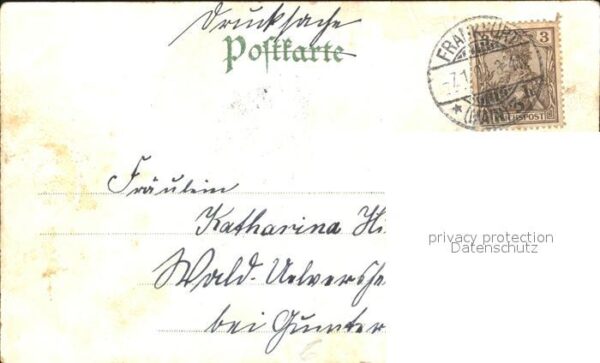 Drucksache
Postkarte
FRANKFURT
3
-7.1
* (MAIN)
REICHSPOST
Fräulein
Katharina Hi
privacy protection
Datenschutz
Wald-Uelvershe
bei Gunter